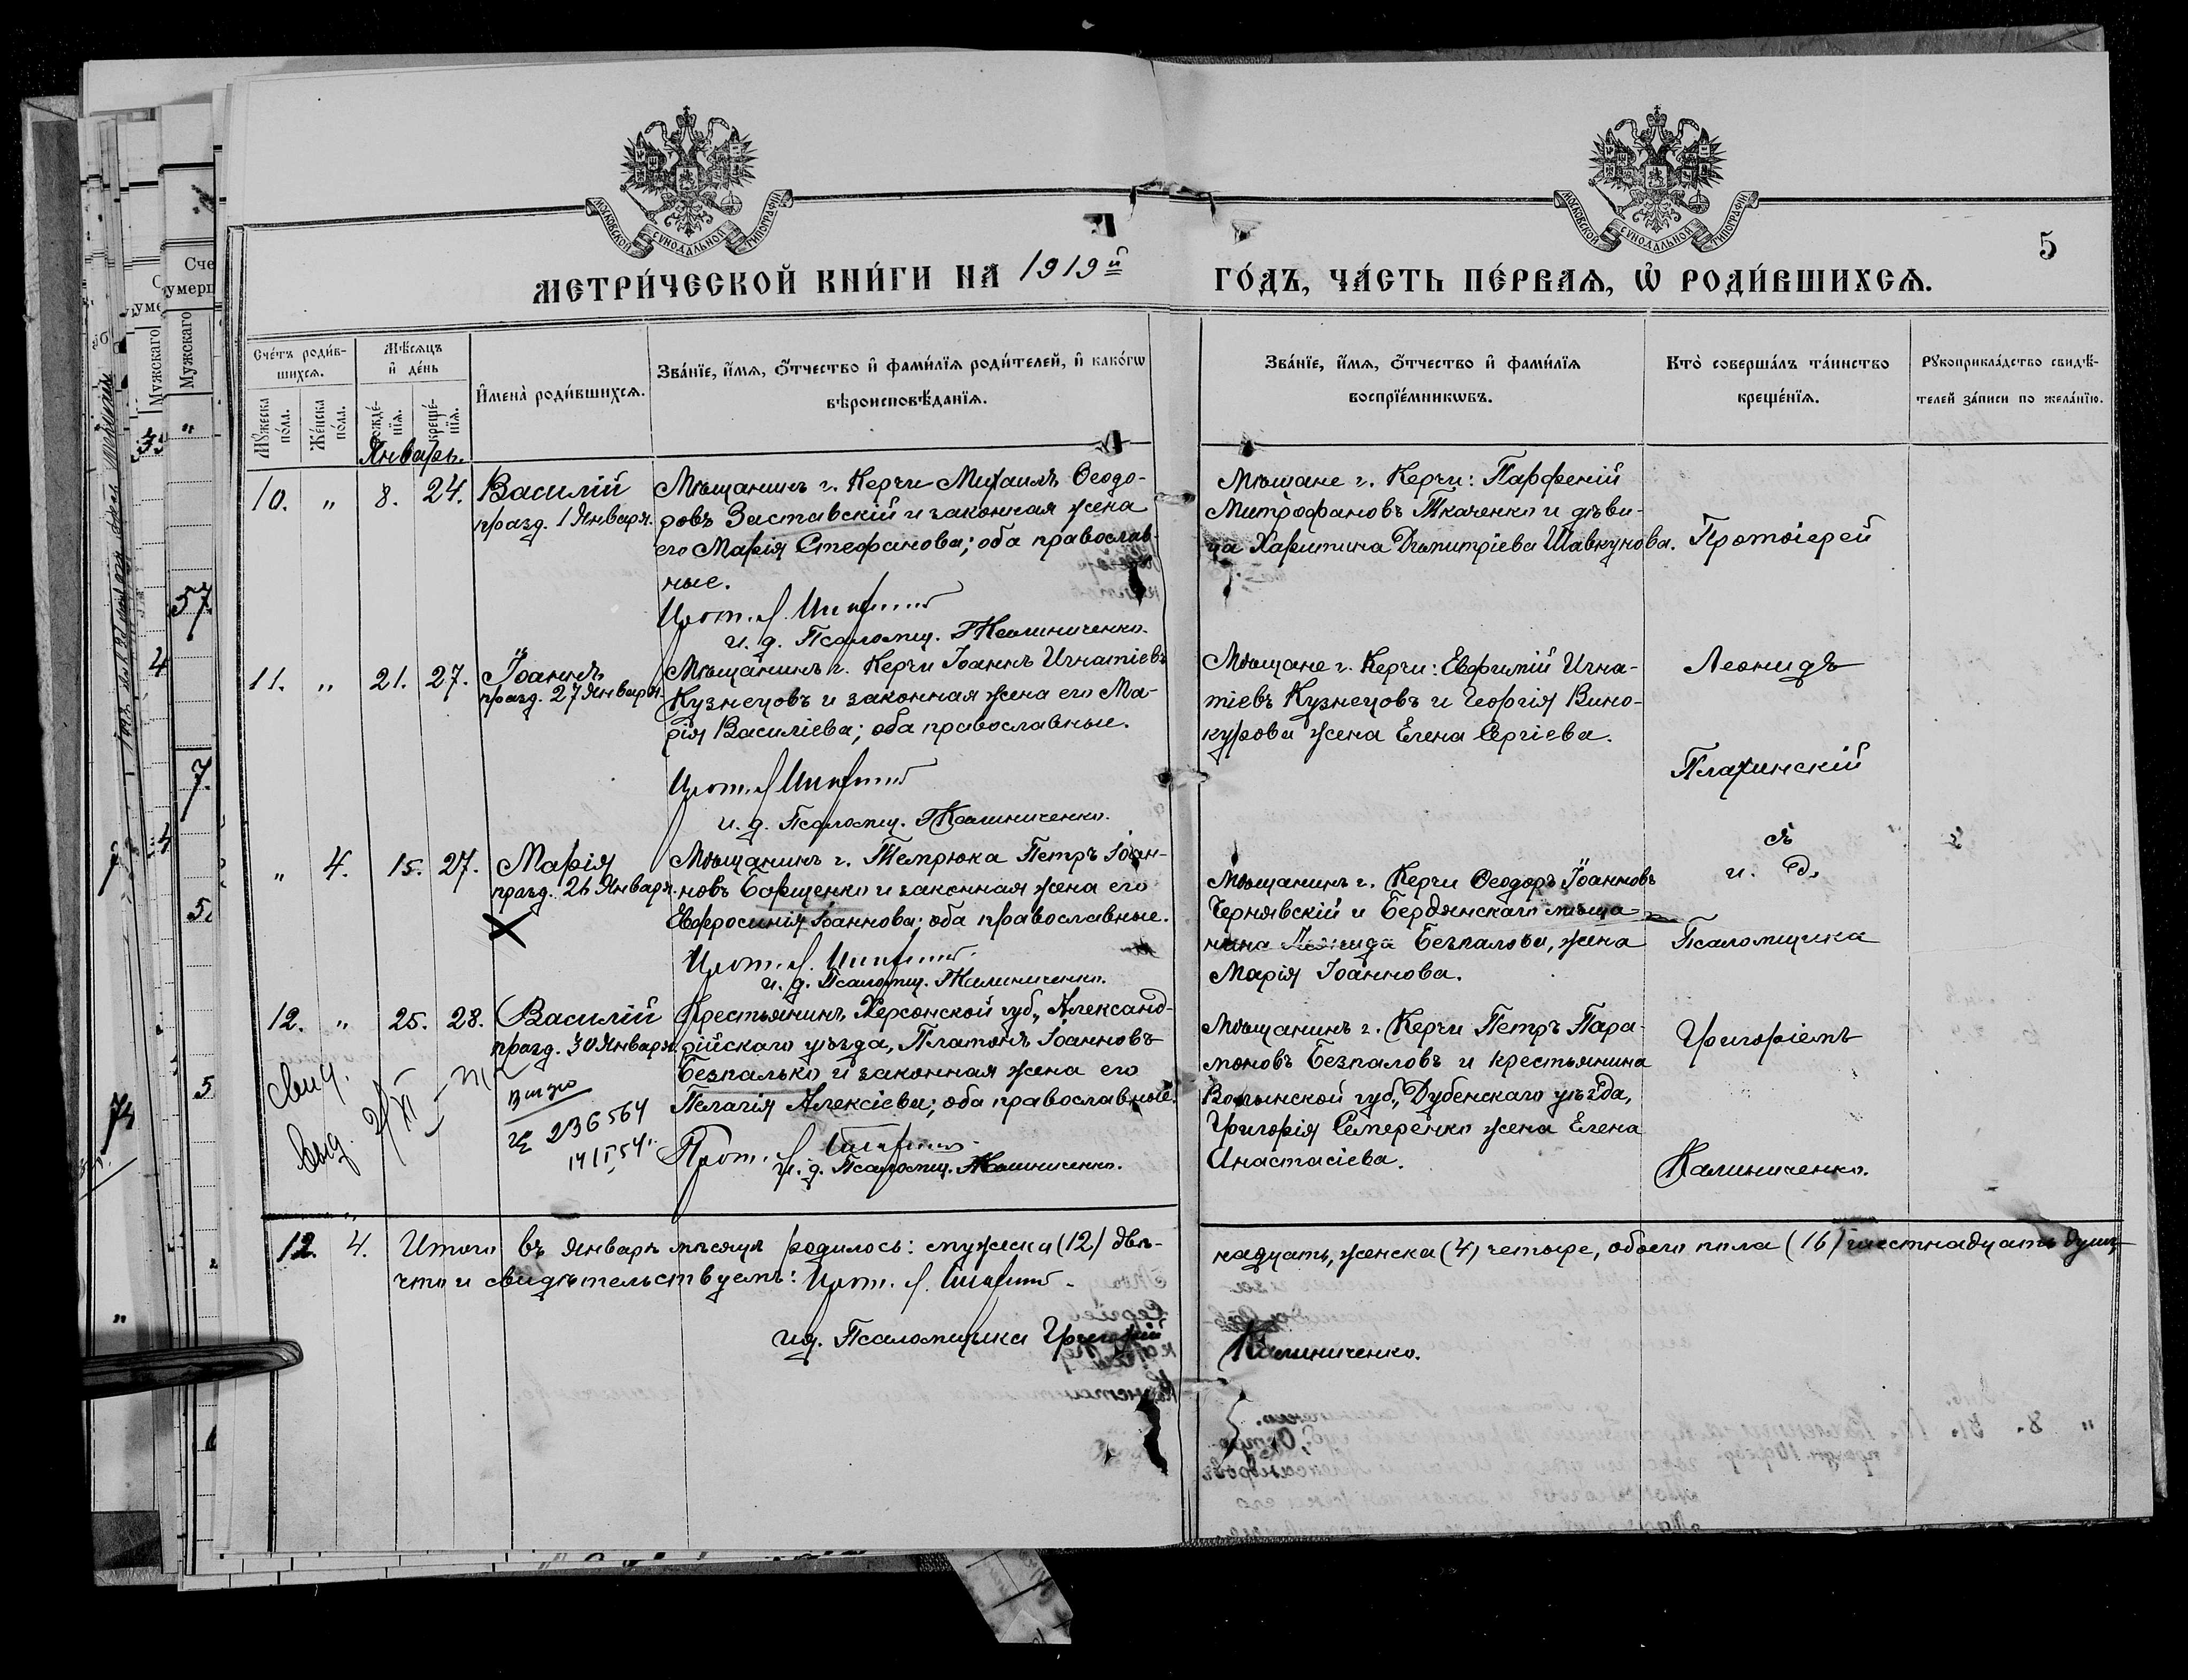 МОСКОВСКОЙ СУНОДАЛЬНОЙ ТИПОГРАФІИ
МОСКОВСКОЙ СУНОДАЛЬНОЙ ТИПОГРАФІИ
5
МЕТРИ́ЧЕСКОЙ КНИ́ГИ НА 1919й ГО́ДЪ, ЧА́СТЬ ПЕ́РВАѦ, Ѡ҆ РОДИ́ВШИХСѦ.
Сче́тъ роди́в-
шихсѧ.
Мꙋ́жеска по́ла.
Же́нска по́ла.
Мѣ́сѧцъ
и҆ де́нь
рожде́-
нїѧ.
креще́-
нїѧ.
И҆мена̀ роди́вшихсѧ.
Зва́нїе, и҆́мѧ, ѻ҆́тчество и҆ фами́лїѧ роди́телей, и҆ како́гѡ
вѣроисповѣ́данїѧ.
Зва́нїе, и҆́мѧ, ѻ҆́тчество и҆ фами́лїѧ
воспрїе́мникѡвъ.
Кто̀ соверша́лъ та́инство
креще́нїѧ.
Рꙋкоприкла́дство свидѣ́-
телей за́писи по жела́нїю.
Январь.
10. " 8. 24. Василій
празд. 1 Января.
Мѣщанинъ г. Керчи Михаилъ Ѳеодо-
ровъ Заставскій и законная жена
его Марія Стефанова; оба православ-
ные.
Прот. Л.
и. д. Псаломщ. Г Калиниченко.
Мѣщане г. Керчи: Парфеній
Митрофановъ Ткаченко и дѣви-
ца Харитина Димитріева Шавкунова.
Протоіерей
11. " 21. 27. Іоаннъ
празд. 27 Января.
Мѣщанинъ г. Керчи Іоаннъ Игнатіевъ
Кузнецовъ и законная жена его Ма-
рія Василіева; оба православные.
Прот. Л.
и. д. Псаломщ. Г Калиниченко.
Мѣщане г. Керчи: Евфимій Игна-
тіевъ Кузнецовъ и Георгія Вино-
курова жена Елена Сергіева.
Леонидъ
Плахинскій
" 4. 15. 27. Марія
празд. 26 Января.
Мѣщанинъ г. Темрюка Петръ Іоан-
новъ Борщенко и законная жена его
Евфросинія Іоаннова; оба православные.
Прот. Л.
и. д. Псаломщ. Г Калиниченко.
Мѣщанинъ г. Керчи Ѳеодоръ Іоанновъ
Чернявскій и Бердянскаго мѣща-
нина Леонида Безпалова, жена
Марія Іоаннова.
съ
и. д.
Псаломщика
12. " 25. 28. Василій
празд. 30 Января.
Крестьянинъ Херсонской губ., Александ-
рійскаго уѣзда, Платонъ Іоанновъ
Безпалько и законная жена его
Пелагія Алексіева; оба православные.
Прот. Л.
и. д. Псаломщ. Г Калиниченко.
Мѣщанинъ г. Керчи Петръ Пара-
моновъ Безпаловъ и крестьянина
Волынской губ., Дубенскаго уѣзда,
Григорія Семеренко жена Елена
Анастасіева.
Григоріемъ
Калиниченко.
236564
12. 4. Итого въ Январѣ мѣсяцѣ родилось: мужеска (12) двѣ-
надцать, женска (4) четыре, обоего пола (16) шестнадцать душъ
что и свидѣтельствуемъ: Прот. Л.
ид. Псаломщика Григорій Калиниченко.